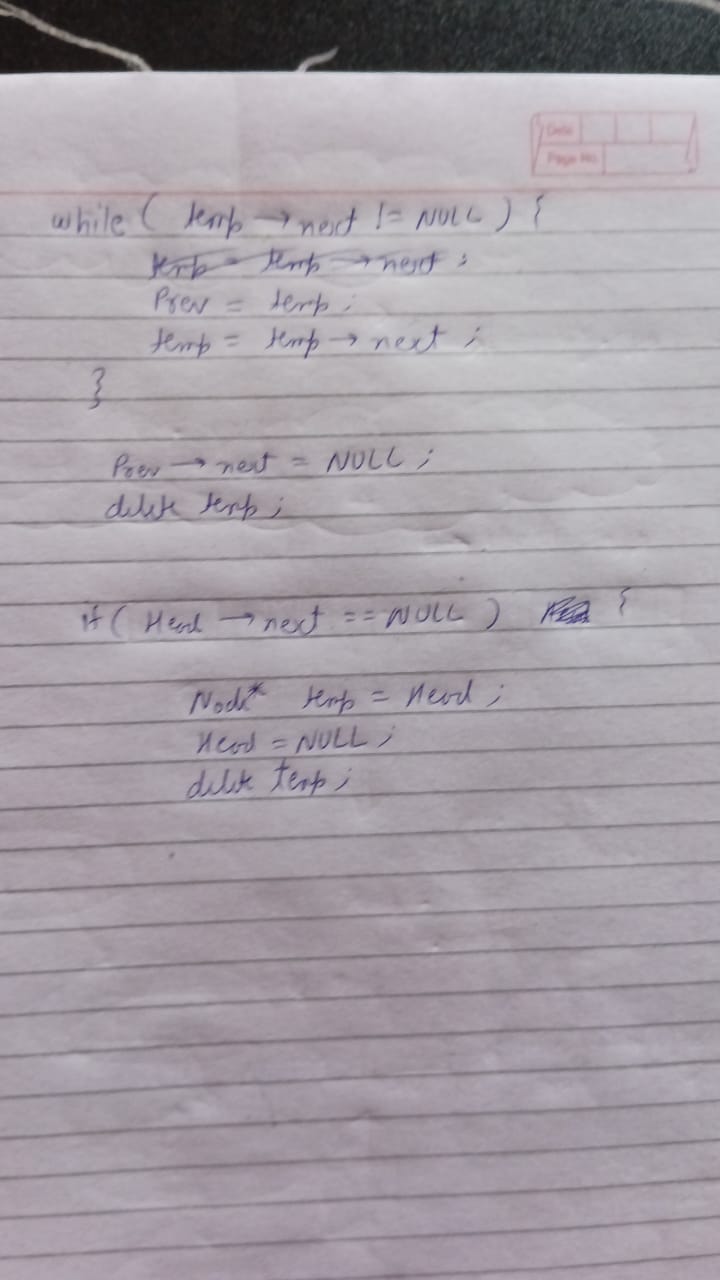 Date
Page No.
while ( temp → next != NULL ) {
temp = temp → next ;
Prev = temp ;
temp = temp → next ;
}
Prev → next = NULL ;
delete temp ;
if ( Head → next == NULL ) {
Node* temp = Head ;
Head = NULL ;
delete temp ;